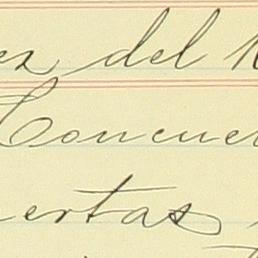 ez del
Concue
ertas